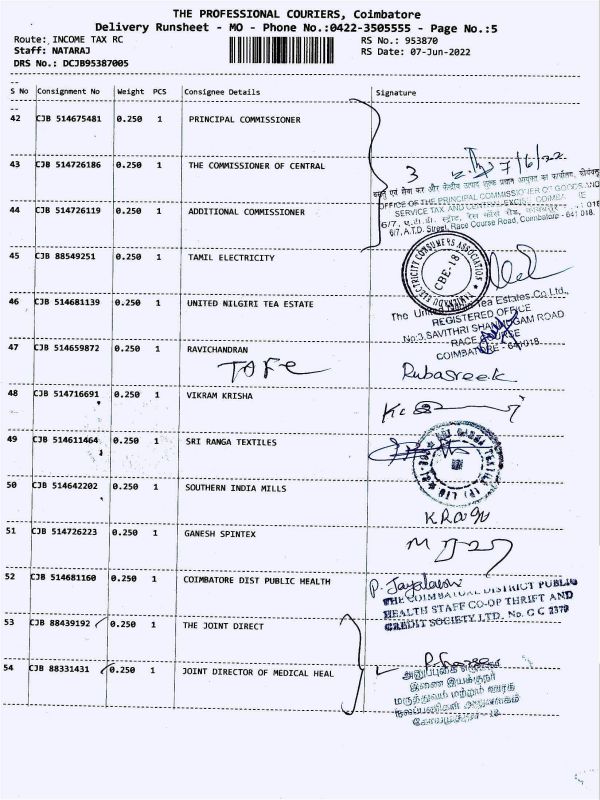 THE PROFESSIONAL COURIERS, Coimbatore
Delivery Runsheet - MO - Phone No.:0422-3505555 - Page No.:5
Route: INCOME TAX RC
RS No.: 953870
Staff: NATARAJ
RS Date: 07-Jun-2022
DRS No.: DCJB95387005
S No Consignment No Weight PCS Consignee Details Signature
42 CJB 514675481 0.250 1 PRINCIPAL COMMISSIONER
43 CJB 514726186 0.250 1 THE COMMISSIONER OF CENTRAL
3
7/6/22
OFFICE OF THE PRINCIPAL COMMISSIONER OF GOODS AND
44 CJB 514726119 0.250 1 ADDITIONAL COMMISSIONER
SERVICE TAX AND
6/7, A.T.D. Street, Race Course Road, Coimbatore - 641 018.
45 CJB 88549251 0.250 1 TAMIL ELECTRICITY
TAMILNADU ELECTRICITY CONSUMERS ASSOCIATION
CBE-18
46 CJB 514681139 0.250 1 UNITED NILGIRI TEA ESTATE
The United Nilgiri Tea Estates Co.Ltd.,
REGISTERED OFFICE
No:3,SAVITHRI SHANMUGAM ROAD
RACE COURSE
COIMBATORE - 641018.
47 CJB 514659872 0.250 1 RAVICHANDRAN
TAFE
Rubasreek
48 CJB 514716691 0.250 1 VIKRAM KRISHA
49 CJB 514611464 0.250 1 SRI RANGA TEXTILES
50 CJB 514642202 0.250 1 SOUTHERN INDIA MILLS
51 CJB 514726223 0.250 1 GANESH SPINTEX
52 CJB 514681160 0.250 1 COIMBATORE DIST PUBLIC HEALTH
P. Jayalakshmi
THE COIMBATORE DISTRICT PUBLIC
HEALTH STAFF CO-OP THRIFT AND
CREDIT SOCIETY LTD. No. G C 2379
53 CJB 88439192 0.250 1 THE JOINT DIRECT
54 CJB 88331431 0.250 1 JOINT DIRECTOR OF MEDICAL HEAL
இணை இயக்குநர்
மருத்துவம் மற்றும் ஊரக